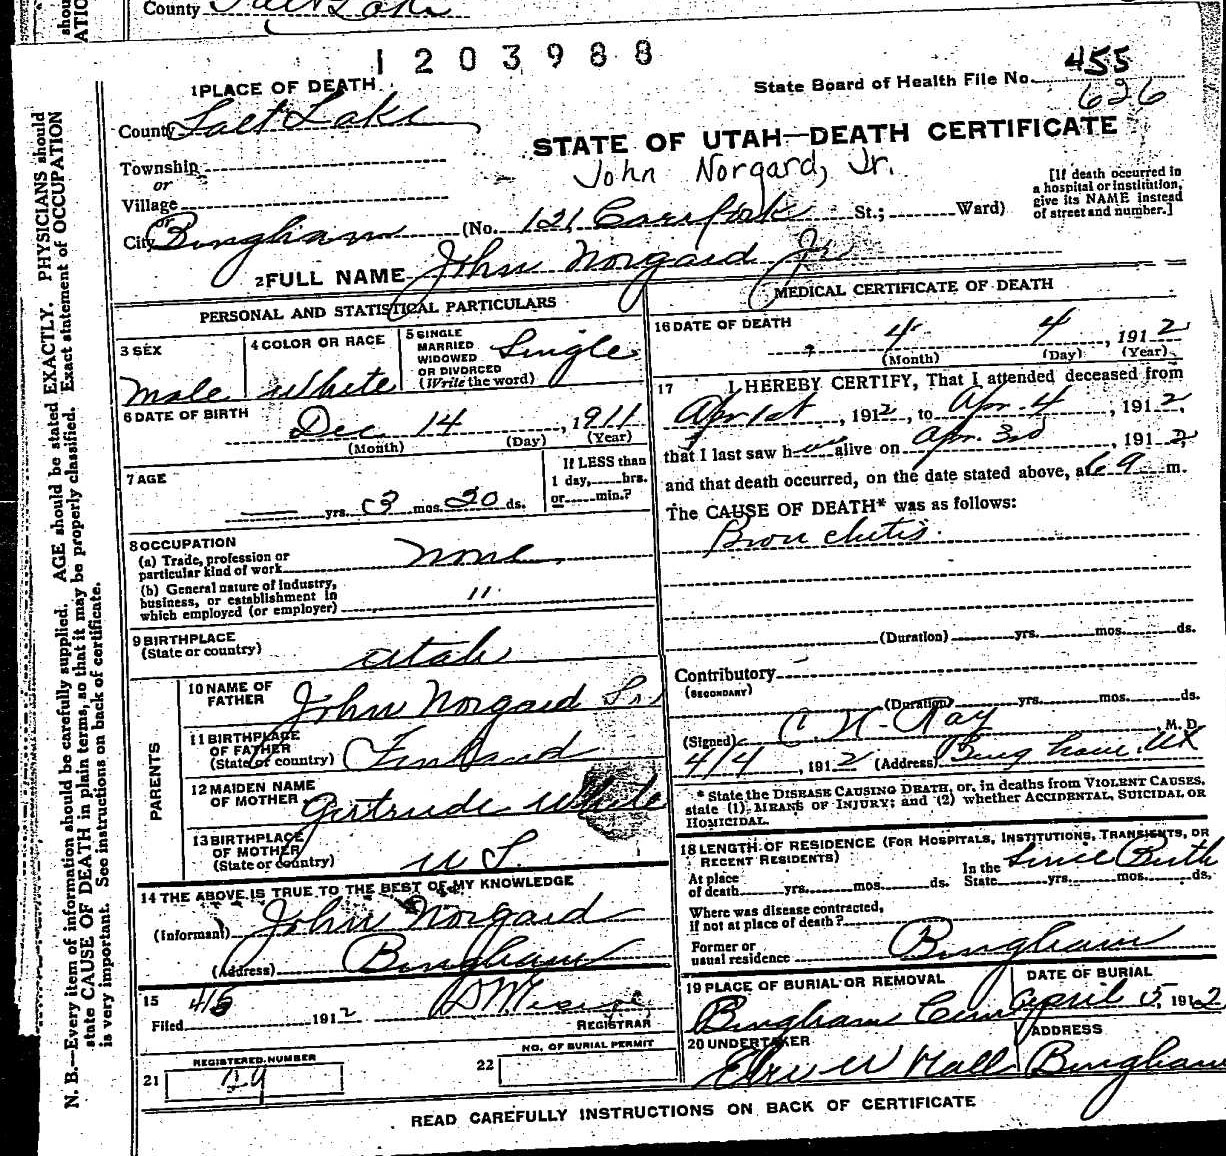 County Salt Lake
1203988
1 PLACE OF DEATH
State Board of Health File No. 455
626
County Salt Lake
STATE OF UTAH—DEATH CERTIFICATE
Township
or
John Norgard, Jr.
Village
or
[If death occurred in a hospital or institution, give its NAME instead of street and number.]
City Bingham (No. 121 Carrfork St.; Ward)
2 FULL NAME John Norgard Jr
PERSONAL AND STATISTICAL PARTICULARS
3 SEX
Male
4 COLOR OR RACE
White
5 SINGLE
MARRIED
WIDOWED
OR DIVORCED
(Write the word)
Single
6 DATE OF BIRTH
Dec 14, 1911
(Month) (Day) (Year)
7 AGE
— yrs. 3 mos. 20 ds.
If LESS than
1 day, hrs.
or min.?
8 OCCUPATION
(a) Trade, profession or
particular kind of work None
(b) General nature of Industry,
business, or establishment in
which employed (or employer) "
9 BIRTHPLACE
(State or country) Utah
PARENTS
10 NAME OF
FATHER John Norgard Sr.
11 BIRTHPLACE
OF FATHER
(State or country) Finland
12 MAIDEN NAME
OF MOTHER Gertrude White
13 BIRTHPLACE
OF MOTHER
(State or country) U S.
14 THE ABOVE IS TRUE TO THE BEST OF MY KNOWLEDGE
(Informant) John Norgard
(Address) Bingham
15
Filed 4/5 1912
REGISTRAR
REGISTERED NUMBER
21
NO. OF BURIAL PERMIT
22
MEDICAL CERTIFICATE OF DEATH
16 DATE OF DEATH
4 4, 1912
(Month) (Day) (Year)
17 I HEREBY CERTIFY, That I attended deceased from
Apr 1st, 1912, to Apr. 4, 1912,
that I last saw h alive on Apr. 3rd, 1912,
and that death occurred, on the date stated above, at 6 a m.
The CAUSE OF DEATH* was as follows:
Bronchitis.
(Duration) yrs. mos. ds.
Contributory
(SECONDARY)
(Duration) yrs. mos. ds.
(Signed) C. N. Ray M. D.
4/4, 1912 (Address) Bingham. Ut
* State the DISEASE CAUSING DEATH, or, in deaths from VIOLENT CAUSES,
state (1) MEANS OF INJURY; and (2) whether ACCIDENTAL, SUICIDAL OR
HOMICIDAL.
18 LENGTH OF RESIDENCE (FOR HOSPITALS, INSTITUTIONS, TRANSIENTS, OR
RECENT RESIDENTS)
At place
of death yrs. mos. ds.
In the
State yrs. mos. ds.
Since Birth
Where was disease contracted,
if not at place of death?
Former or
usual residence Bingham
19 PLACE OF BURIAL OR REMOVAL
Bingham Cem
DATE OF BURIAL
April 5, 1912
20 UNDERTAKER
W Hall
ADDRESS
Bingham
READ CAREFULLY INSTRUCTIONS ON BACK OF CERTIFICATE
N. B.—Every item of information should be carefully supplied. AGE should be stated EXACTLY. PHYSICIANS should
state CAUSE OF DEATH in plain terms, so that it may be properly classified. Exact statement of OCCUPATION
is very important. See instructions on back of certificate.